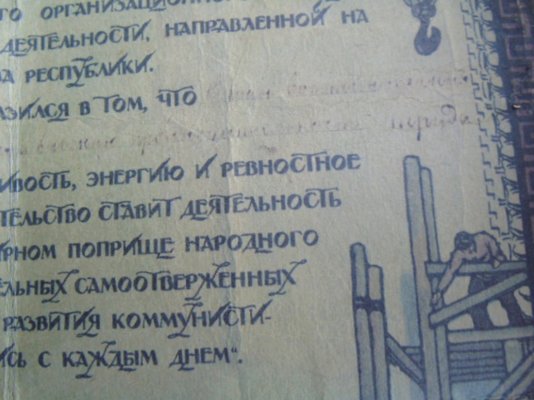 ГО ОРГАНИЗАЦИОННО
ДЕЯТЕЛЬНОСТИ, НАПРАВЛЕННОЙ НА
ВА РЕСПУБЛИКИ.
АЗИЛСЯ В ТОМ, ЧТО
труда
ИВОСТЬ, ЭНЕРГИЮ И РЕВНОСТНОЕ
ТЕЛЬСТВО СТАВИТ ДЕЯТЕЛЬНОСТЬ
РНОМ ПОПРИЩЕ НАРОДНОГО
ЕЛЬНЫХ САМООТВЕРЖЕННЫХ
РАЗВИТИЯ КОММУНИСТИ-
ИСЬ С КАЖДЫМ ДНЕМ".